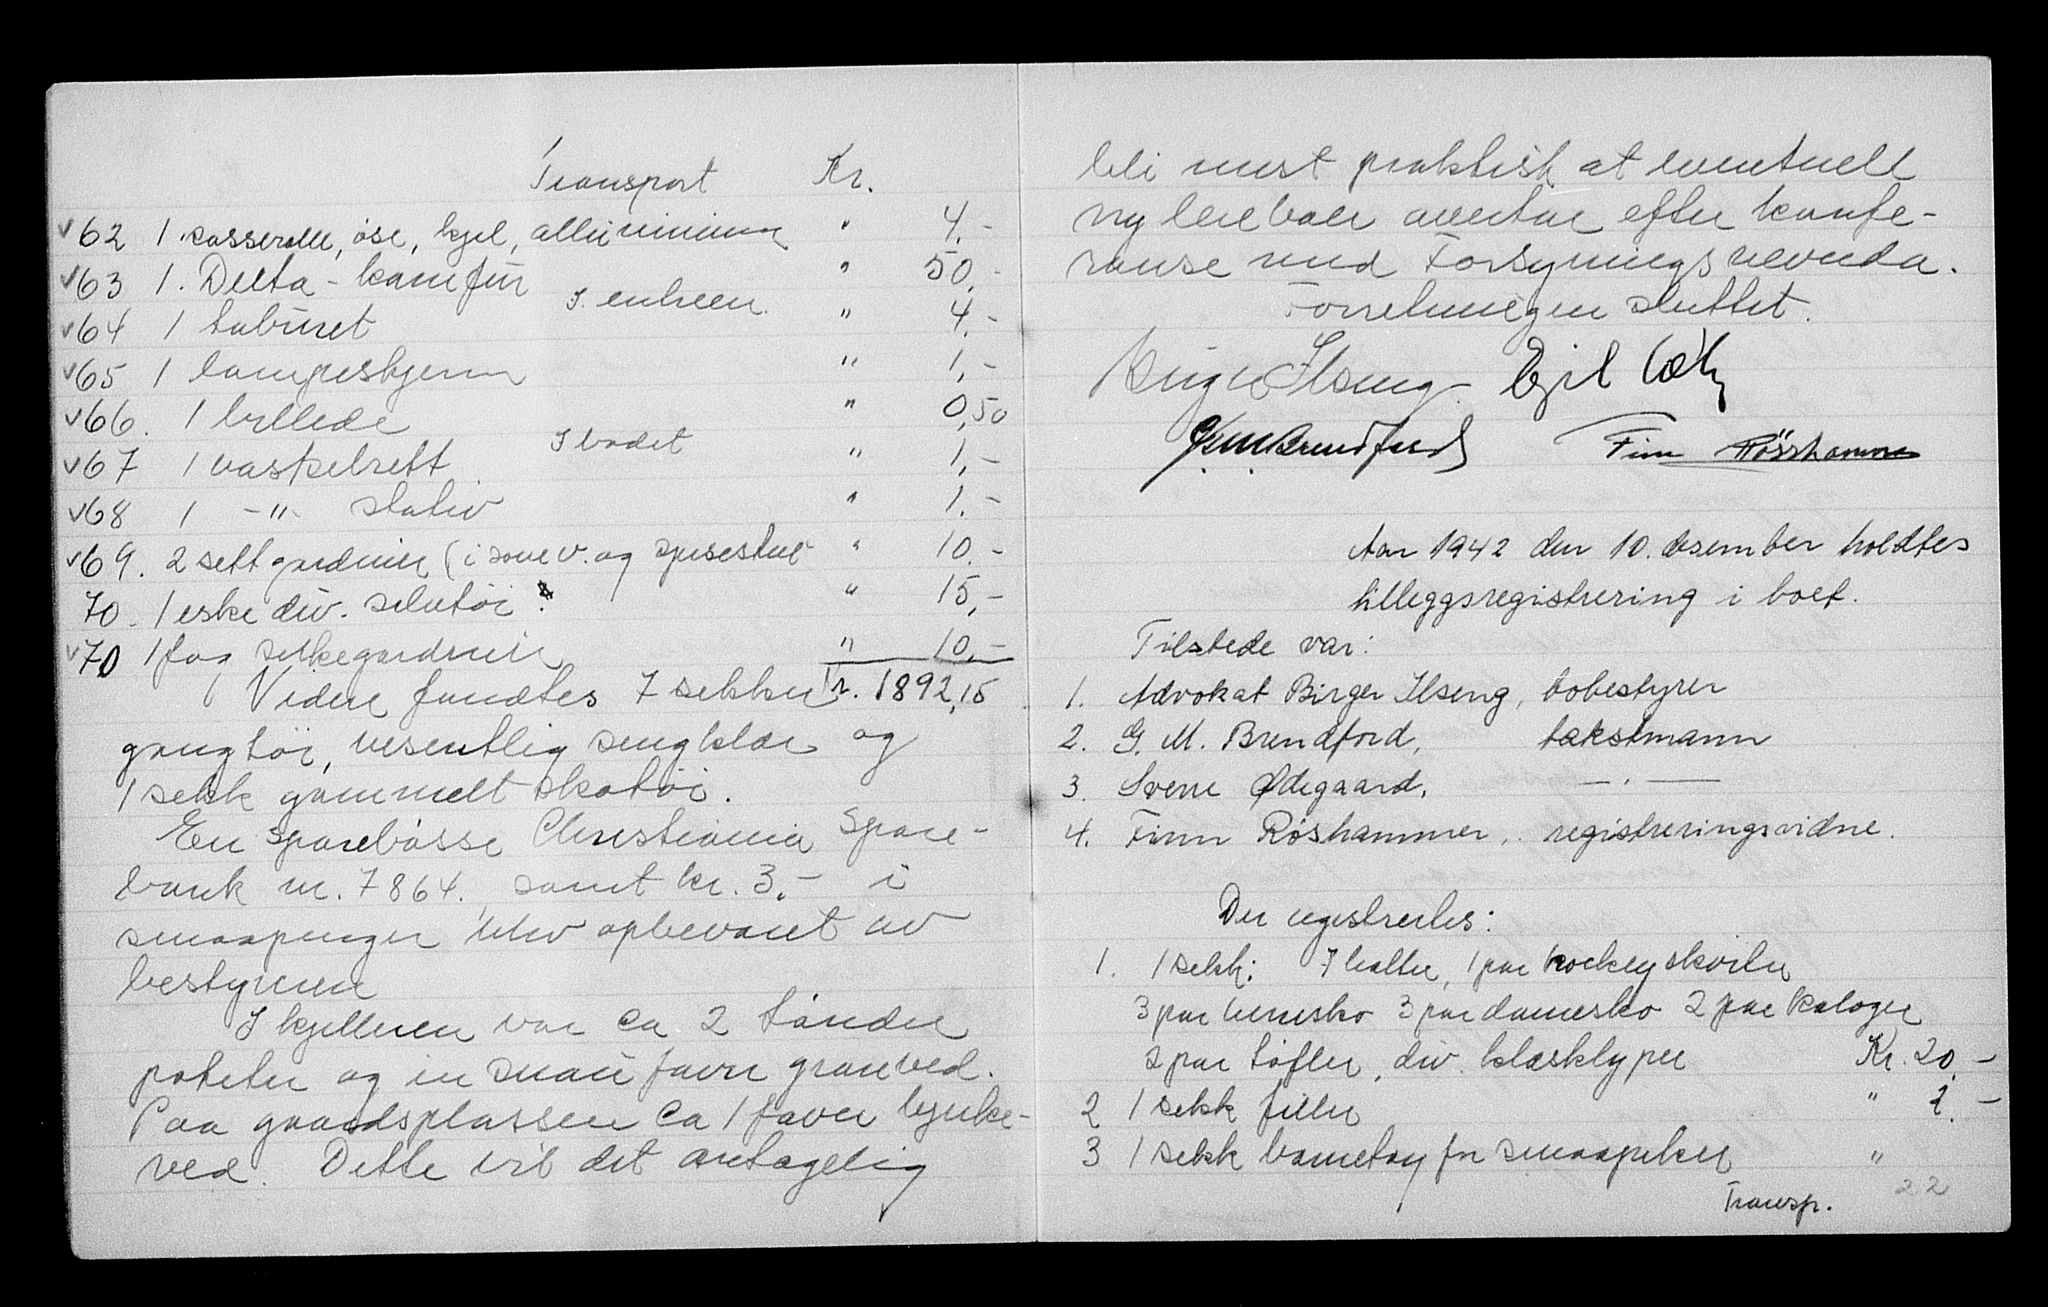 Transport Kr.
v62 1 kasserolle, øse, kjel, alluminium " 4.-
v63 1. Delta-komfur " 50.-
I entreen.
v64 1 taburet " 4.-
v65 1 lampeskjerm " 1,-
v66. 1 billede " 0,50
I badet
v67 1 vaskebrett " 1,-
v68 1 -"- stativ " 1.-
v69. 2 sett gardiner (i sovev. og spisestue " 10.-
70. 1 eske div. sølvtøi " 15,-
v70 1 fag silkegardiner " 10,-
Videre fandtes 7 sekker Kr. 1892,15
gangtøi, vesentlig sengklær og
1 sekk gammelt skotøi.
En sparebøsse Christiania Spare-
bank nr. 7864, samt kr. 3,- i
smaapenger blev opbevaret av
bestyreren
I kjelleren var ca 2 tønder
poteter og en snau favn granved.
Paa gaardsplassen ca 1 favn bjerke-
ved. Dette vil det antagelig
bli mest praktisk at eventuell
ny leieboer overtar efter konfe-
ranse med Forsyningsnevnda.
Forretningen sluttet.
Birger Ilseng. Egil
G M Brendford Finn Röshammer
Aar 1942 den 10. desember holdtes
tilleggsregistrering i boet.
Tilstede var:
1. Advokat Birger Ilseng, bobestyrer
2. G. M. Brendford, takstmann
3. Sverre Ødegaard, — " —
4. Finn Røshammer, registreringsvidne.
Der registrertes:
1. 1 sekk: 7 hatter, 1 par hockeyskoiter
3 par herresko 3 par damesko 2 par kalosjer
2 par tøfler, div. klæsklyper Kr. 20.-
2 1 sekk filler " 2.-
3 1 sekk barnetøy for smaapiker "
Transp. 22